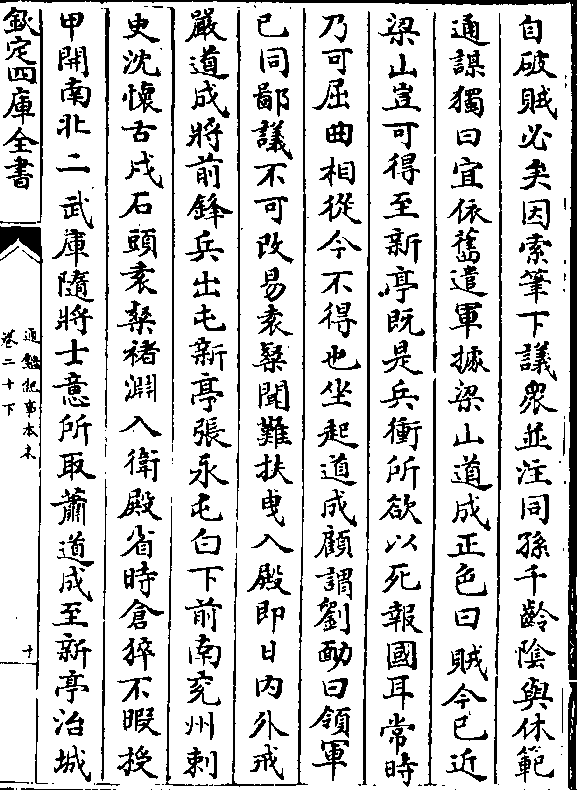 自破賊必矣因索筆下議衆並注同孫千齡陰與休範
通謀獨曰宜依舊遣軍據梁山道成正色曰賊今已近
梁山豈可得至新亭既是兵衝所欲以死報國耳常時
乃可屈曲相從今不得也坐起道成顧謂劉勔曰領軍
已同鄙議不可改易袁粲聞難扶曳入殿即日內外戒
嚴道成將前鋒兵出屯新亭張永屯白下前南兖州刺
史沈懷古戍石頭袁粲褚淵入衛殿省時倉猝不暇授
甲開南北二武庫隨將士意所取蕭道成至新亭治城
欽定四庫全書
通鑑紀事本末
卷二十下
十